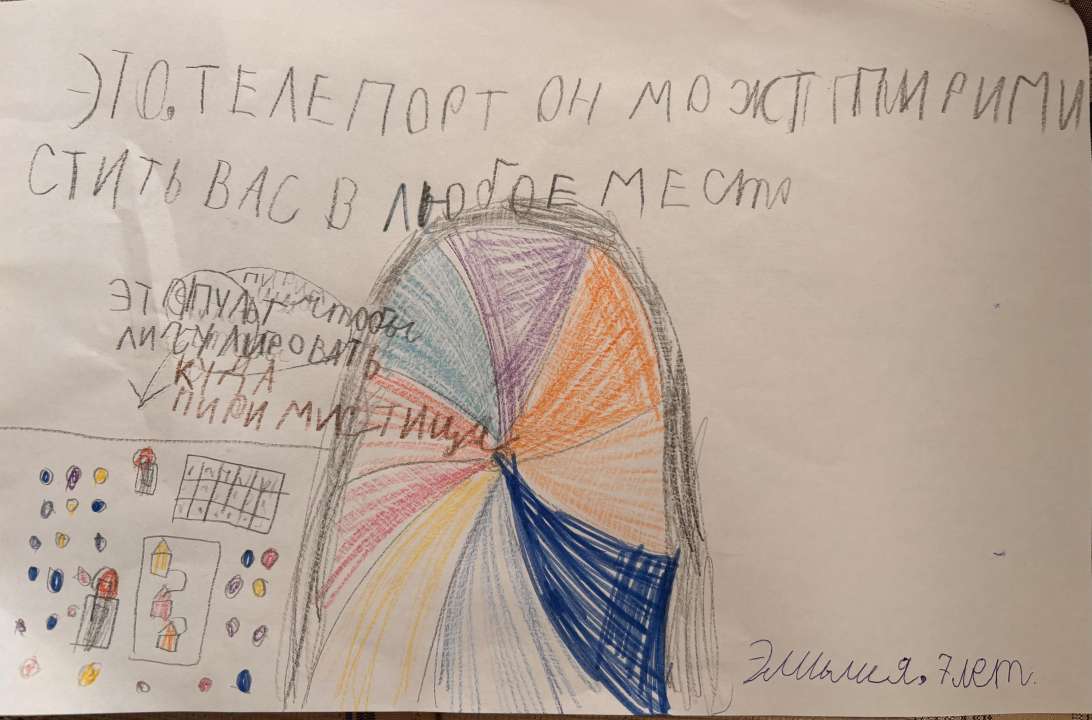 ЭТО. ТЕЛЕПОРТ ОН МОЖТ ПИРИМИ
СТИТЬ ВАС В ЛЮБОЕ МЕСТО
ЭТО ПУЛЬТ чтобы
КУДА
ПИРИМИСТИЦА
Эмилия. 7 лет.